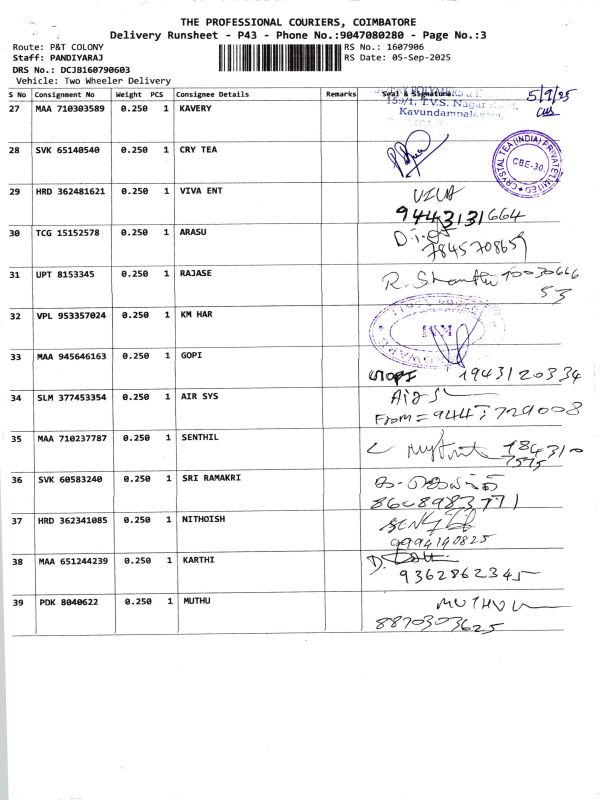 THE PROFESSIONAL COURIERS, COIMBATORE
Delivery Runsheet - P43 - Phone No.:9047080280 - Page No.:3
Route: P&T COLONY
RS No.: 1607906
Staff: PANDIYARAJ
RS Date: 05-Sep-2025
DRS No.: DCJB160790603
Vehicle: Two Wheeler Delivery
S No Consignment No Weight PCS Consignee Details Remarks Seal & Signature
159/1, T.V.S. Nagar
Kavundampalayam,
5/9/25
27 MAA 710303589 0.250 1 KAVERY
28 SVK 65140540 0.250 1 CRY TEA
CRYSTAL TEA (INDIA) PRIVATE LIMITED
CBE-30.
29 HRD 362481621 0.250 1 VIVA ENT
VIVA
9443131664
30 TCG 15152578 0.250 1 ARASU
7845708659
31 UPT 8153345 0.250 1 RAJASE
R. Shanthi
53
32 VPL 953357024 0.250 1 KM HAR
33 MAA 945646163 0.250 1 GOPI
1943120334
34 SLM 377453354 0.250 1 AIR SYS
From = 9447729008
35 MAA 710237787 0.250 1 SENTHIL
36 SVK 60583240 0.250 1 SRI RAMAKRI
8608983771
37 HRD 362341085 0.250 1 NITHOISH
9994140825
38 MAA 651244239 0.250 1 KARTHI
D.
9362862345
39 PDK 8040622 0.250 1 MUTHU
8870303625